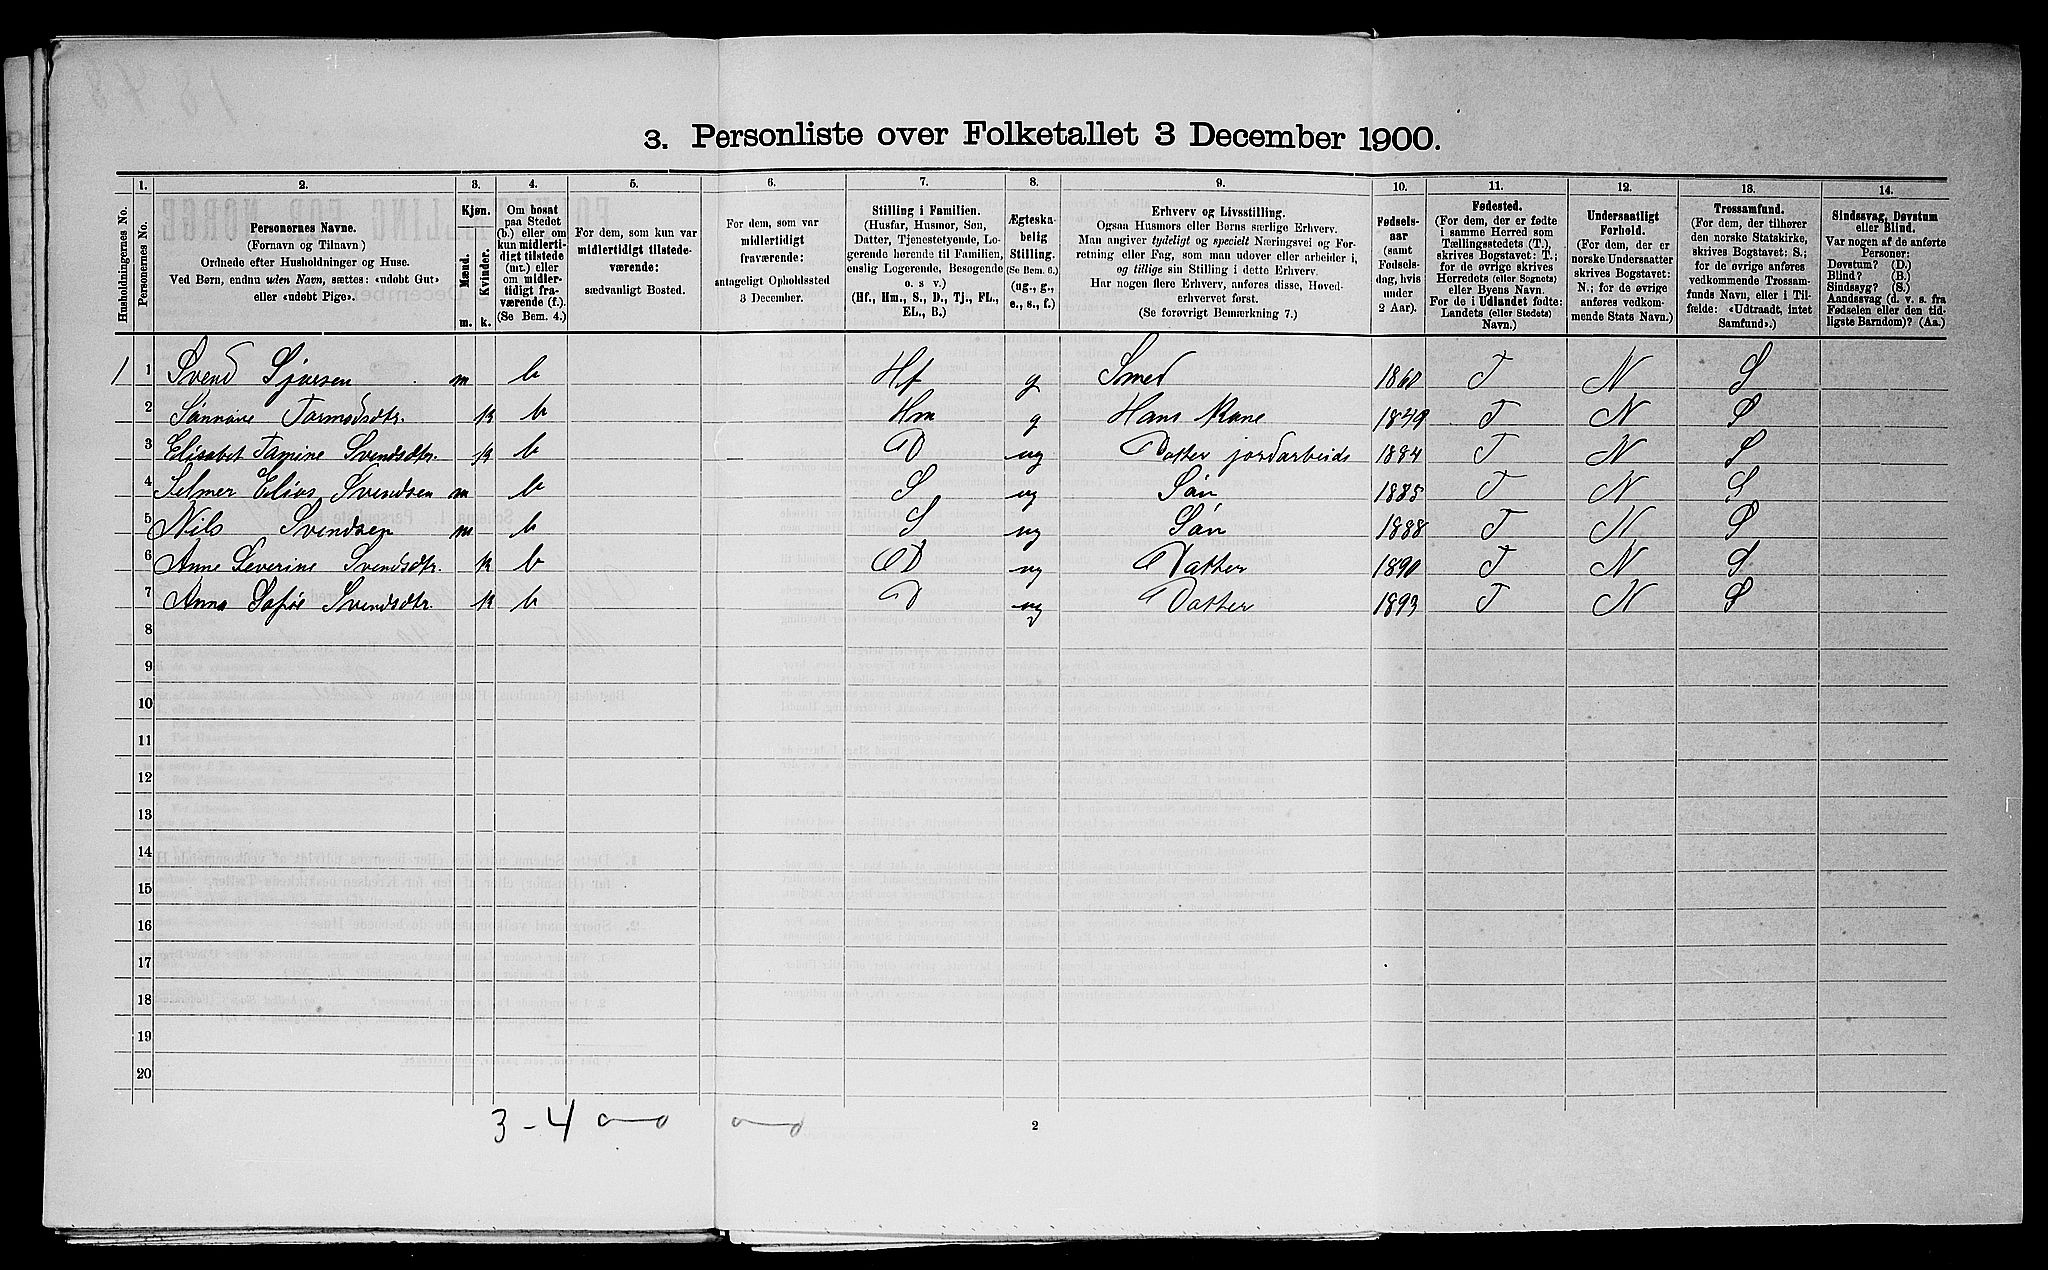 3. Personliste over Folketallet 3 December 1900.
Husholdningernes No.
1. Personernes No.
2. Personernes Navne.
(Fornavn og Tilnavn)
Ordnede efter Husholdninger og Huse.
Ved Børn, endnu uden Navn, sættes: «udøbt Gut»
eller «udøbt Pige».
3. Kjøn.
Mænd. m.
Kvinder. k.
4. Om bosat
paa Stedet
(b.) eller om
kun midlerti-
digt tilstede
(mt.) eller om
midler-
tidigt fra-
værende (f.).
(Se Bem. 4.)
5. For dem, som kun var
midlertidigt tilstede-
værende:
sædvanligt Bosted.
6. For dem, som var
midlertidigt
fraværende:
antageligt Opholdssted
3 December.
7. Stilling i Familien.
(Husfar, Husmor, Søn,
Datter, Tjenestetyende, Lo-
gerende hørende til Familien,
enslig Logerende, Besøgende
o. s v.)
(Hf., Hm., S., D., Tj., FL.,
EL., B.)
8. Ægteska-
belig
Stilling.
(Se Bem. 6.)
(ug., g.,
e., s., f.)
9. Erhverv og Livsstilling.
Ogsaa Husmors eller Børns særlige Erhverv.
Man angiver tydeligt og specielt Næringsvei og For-
retning eller Fag, som man udover eller arbeider i,
og tillige sin Stilling i dette Erhverv.
Har nogen flere Erhverv, anføres disse, Hoved-
erhvervet først.
(Se forøvrigt Bemærkning 7.)
10. Fødsels-
aar
(samt
Fødsels-
dag, hvis
under
2 Aar).
11. Fødested.
(For dem, der er fødte
i samme Herred som
Tællingsstedets (T.),
skrives Bogstavet: T.;
for de øvrige skrives
Herredets (eller Sognets)
eller Byens Navn.
For de i Udlandet fødte:
Landets (eller Stedets)
Navn.)
12. Undersaatligt
Forhold.
(For dem, der er
norske Undersaatter
skrives Bogstavet:
N.; for de øvrige
anføres vedkom-
mende Stats Navn.)
13. Trossamfund.
(For dem, der tilhører
den norske Statskirke,
skrives Bogstavet: S.;
for de øvrige anføres
vedkommende Trossam-
funds Navn, eller i Til-
fælde: «Udtraadt, intet
Samfund».)
14. Sindssvag, Døvstum
eller Blind.
Var nogen af de anførte
Personer:
Døvstum? (D.)
Blind? (B.)
Sindssyg? (S.)
Aandssvag (d. v. s. fra
Fødselen eller den tid-
ligste Barndom)? (Aa.)
1 1 Svend Sjursen m b Hf g Smed 1860 T N S
2 Sønnøve Tormodsdtr. k b Hm g Hans Kone 1849 T N S
3 Elisabet Tamine Svendsdtr. k b D ug Datter jordarbeids 1884 T N S
4 Selmer Elias Svendsen m b S ug Søn 1885 T N S
5 Nils Svendsen m b S ug Søn 1888 T N S
6 Anne Severine Svendsdtr. k b D ug Datter 1890 T N S
7 Anna Sofie Svendsdtr. k b D ug Datter 1893 T N S
8
9
10
11
12
13
14
15
16
17
18
19
20
3-4 0-0 0-0
2